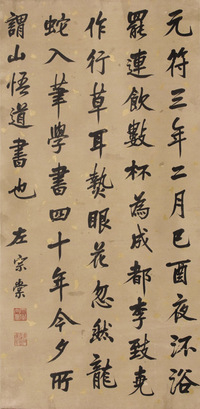 元符三年二月己酉夜沐浴
罷連飲數杯為成都李致堯
作行草耳熱眼花忽然龍
蛇入筆學書四十年今夕所
謂山悟道書也
左宗棠